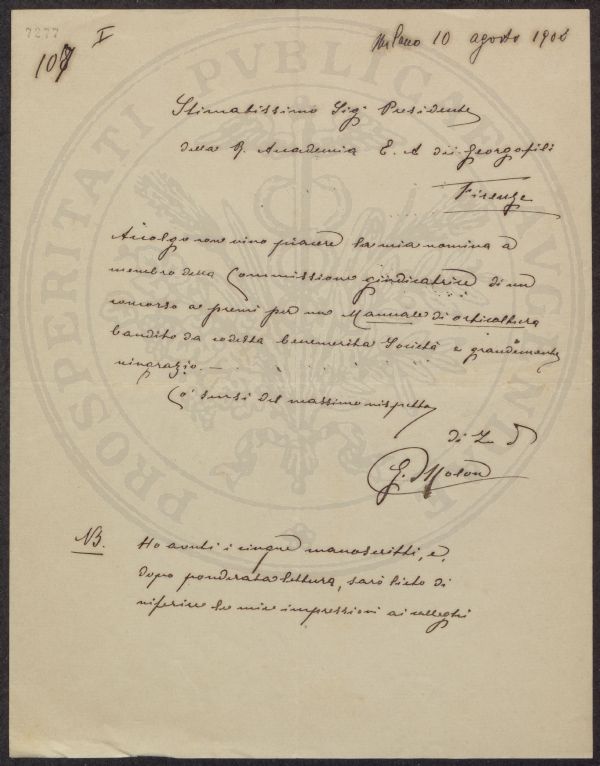 7277
I
107
Milano 10 agosto 1908
Stimatissimo Sig. Presidente
della R. Accademia E. A. dei Georgofili
Firenze
Accolgo con vivo piacere la mia nomina a
membro della Commissione giudicatrice di un
concorso a premi per un Manuale di orticoltura
bandito da codesta benemerita Società e grandemente
ringrazio. —
Co' sensi del massimo rispetto
di
G. Molon
NB. Ho avuti i cinque manoscritti, e,
dopo ponderata lettura, sarò lieto di
riferire le mie impressioni ai colleghi
PROSPERITATI PUBLICAE AUGENDAE